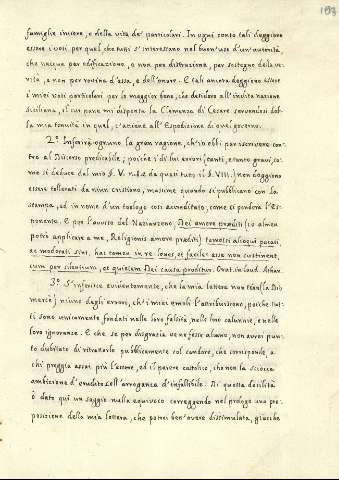 193
famiglie intiere, e della vita de' particolari. In ogni conto tali deggiono
essere i voti, per quel che tutti s'interessano nel buon'uso d'un'autorità,
che nacque per edificazione, e non per distruzione, per sostegno della ve-
rità, e non per rovina d'essa, e dell'onore. E tali ancora deggiono essere
i miei voti particolari per lo maggior bene, che desidero all'inclita nazione
Siciliana, il cui pane mi dispensa la Clemenza di Cesare servendosi del-
la mia tenuità in quel, s'attiene all'Espedizione di quel governo.
2.° Inferirà ognuno la gran ragione, ch'io ebbi per scrivere con-
tro al Discorso predicabile; poiche i di lui errori, tanti, e tanto gravi, co-
me si deduce dal mio §. V. sino da quasi tutto il §. VIII.) non deggiono
essere tollerati da niun cristiano, massime quando si pubblicano con la
stampa, ed in nome d'un teologo così accreditato, come si pondera l'Es-
ponente. E per l'avviso del Nazianzeno, Dei amore præditi (io almen
potrò applicare a me, Religionis amore præditi) tametsi alioqui pacati
ac moderati sint, hac tamen in re lenes, et faciles esse non sustinent,
cum per silentium, et quietem Dei causa proditur. Orat. in laud. Athan.
3.° S'inferisce evidentemente, che la mia lettera non tiene (la Dio
mercè) niuno degli errori, ch'i miei emoli l'attribuiscono, poiche tut-
ti sono unicamente fondati nelle loro falsità, nelle loro calunnie, e nelle
loro ignoranze. E che se per disgrazia ve ne fosse alcuno, non avrei pun-
to dubitato di ritrattarlo pubblicamente col candore, che corrisponde, a
chi preggia assai più l'essere, ed il parere cattolico, che non la sciocca
ambizione d'erudito coll'arroganza d'infallibile. Di questa docilità
ò dato qui un saggio nulla equivoco correggendo nel prologo una pro-
posizione della mia lettera, che potrei ben'avere dissimulata, giacche